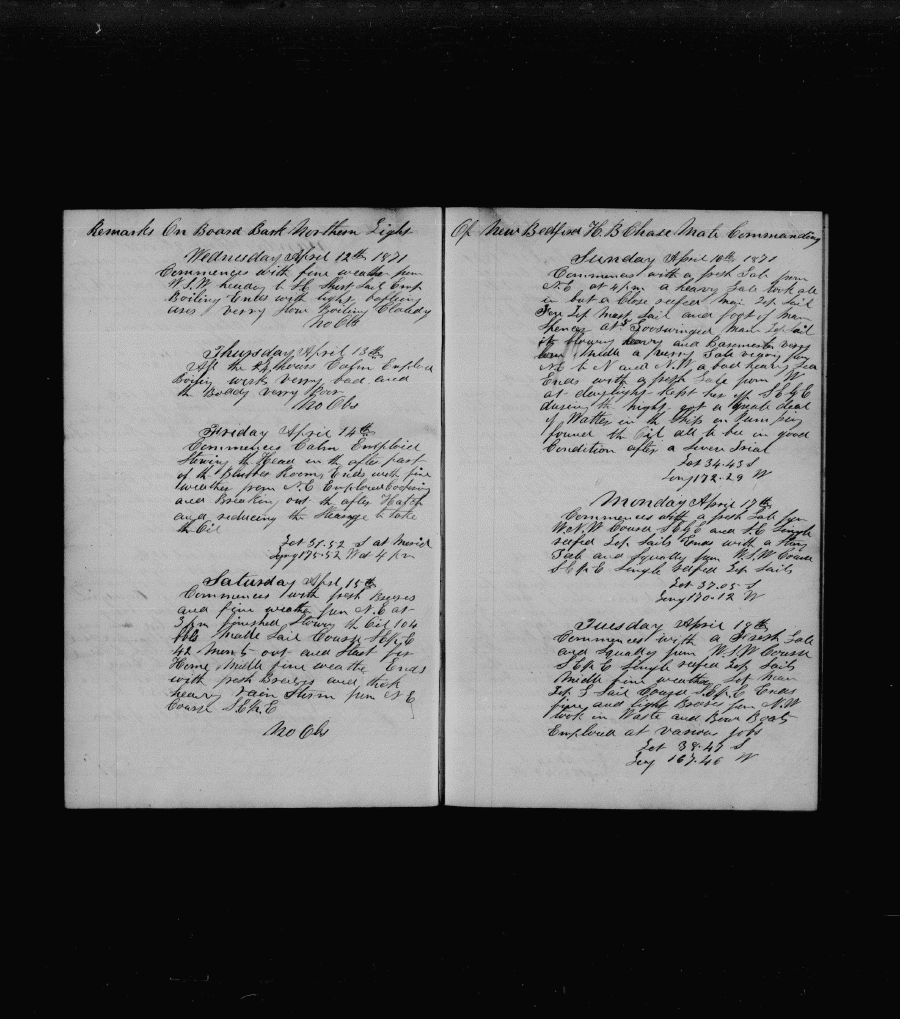 Remarks On Board Bark Northern Light
Wednesday April 12th 1871
Commences with fine weather from
W.S.W heading to S.E Short Sail Emp
Boiling Ends with light baffling
airs verry slow Boiling Cloudy
No Obs
Thursday April 13th
All the 24 hours Calm Employed
Boiling work verry bad and
the Boddy verry Poor
No Obs
Friday April 14th
Commences Calm Emploied
Stowing the Head in the after part
of the Blubber Room Ends with fine
weather from N.E Employed Coopering
and Breaking out the after Hatch
and reducing the to take
the Oil
Lat 31.52 S at Merid
Long 175.52 W at 4 pm
Saturday April 15th
Commences with fresh Breezes
and fine weather from N.E at
3 pm finished Stowing the Oil 104
bbls Made Sail Course S.E by E
42 Months out and Start for
Home Middle fine weather Ends
with fresh Breezes and thick
heavy rain Storm from N E
Course S.E by E
No Obs
Of New Bedford H. B Chase Mate Commanding
Sunday April 16th 1871
Commences with a fresh Gale from
N.E at 4 pm a heavy Gale took all
in but a Close reefed main Top Sail
Fore Top Mast Sail and foot of main
Spencer at 5 Gooswinged Main Top Sail
it blowing heavy and Barometer verry
low Middle a verry Gale from
N.E to N and N.W a bad heavy Sea
Ends with a fresh Gale from W
at daylight Kept her off S E by E
during the night got a great deal
of Watter in the Ship on Pumping
found the Oil all to be in good
Condition after a Severe Trial
Lat 34.43 S
Long 172.29 W
Monday April 17th
Commences with a fresh Gale from
W.N.W Course S.E by E and S.E Single
reefed Top Sails Ends with a Strong
Gale and Squally from W.S.W Course
S.E by E Single Reefed Top Sails
Lat 37.05 S
Long 170.12 W
Tuesday April 18th
Commences with a Fresh Gale
and Squally from W.S.W Course
S.E by E Single reefed Top Sails
Middle fine weather Set Main
Top G Sail Course S.E by E Ends
fine and light Breezes from N.W
took in Waste and Bow Boats
Employed at various jobs
Lat 38.47 S
Long 167.46 W